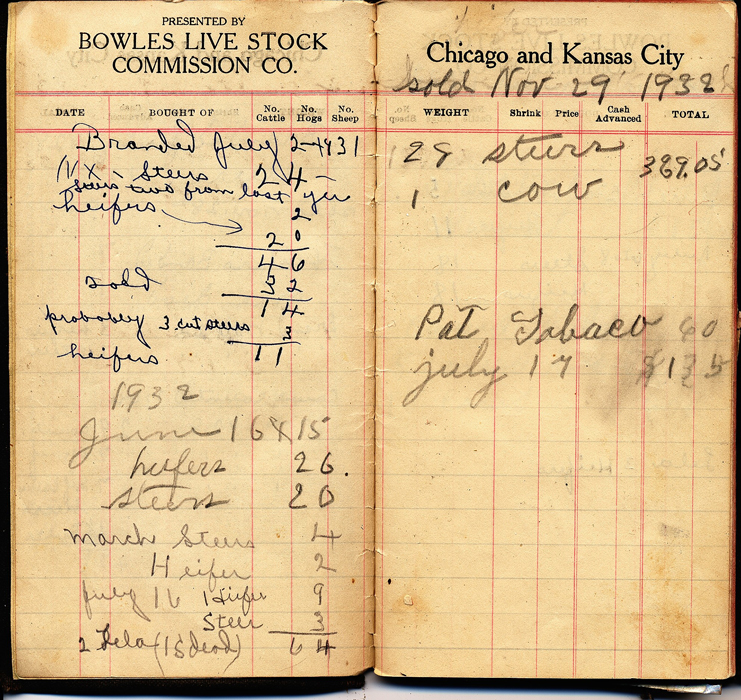 PRESENTED BY
BOWLES LIVE STOCK
COMMISSION CO.
DATE BOUGHT OF No. Cattle No. Hogs No. Sheep
Branded July 2-1931
Steers 24
Steers two from last yer
heifers 2
20
46
sold 32
14
probably 3 cut steers 3
heifers 11
1932
June 16 15
heifers 26.
steers 20
march Steers 4
Heifer 2
july 16 Hiifer 9
Steer 3
2 (1 is dead) 64
Chicago and Kansas City
sold Nov 29 1932
WEIGHT Shrink Price Cash Advanced TOTAL
29 steers 389.05
1 cow
Pat Tobaco 60
july 17 $135